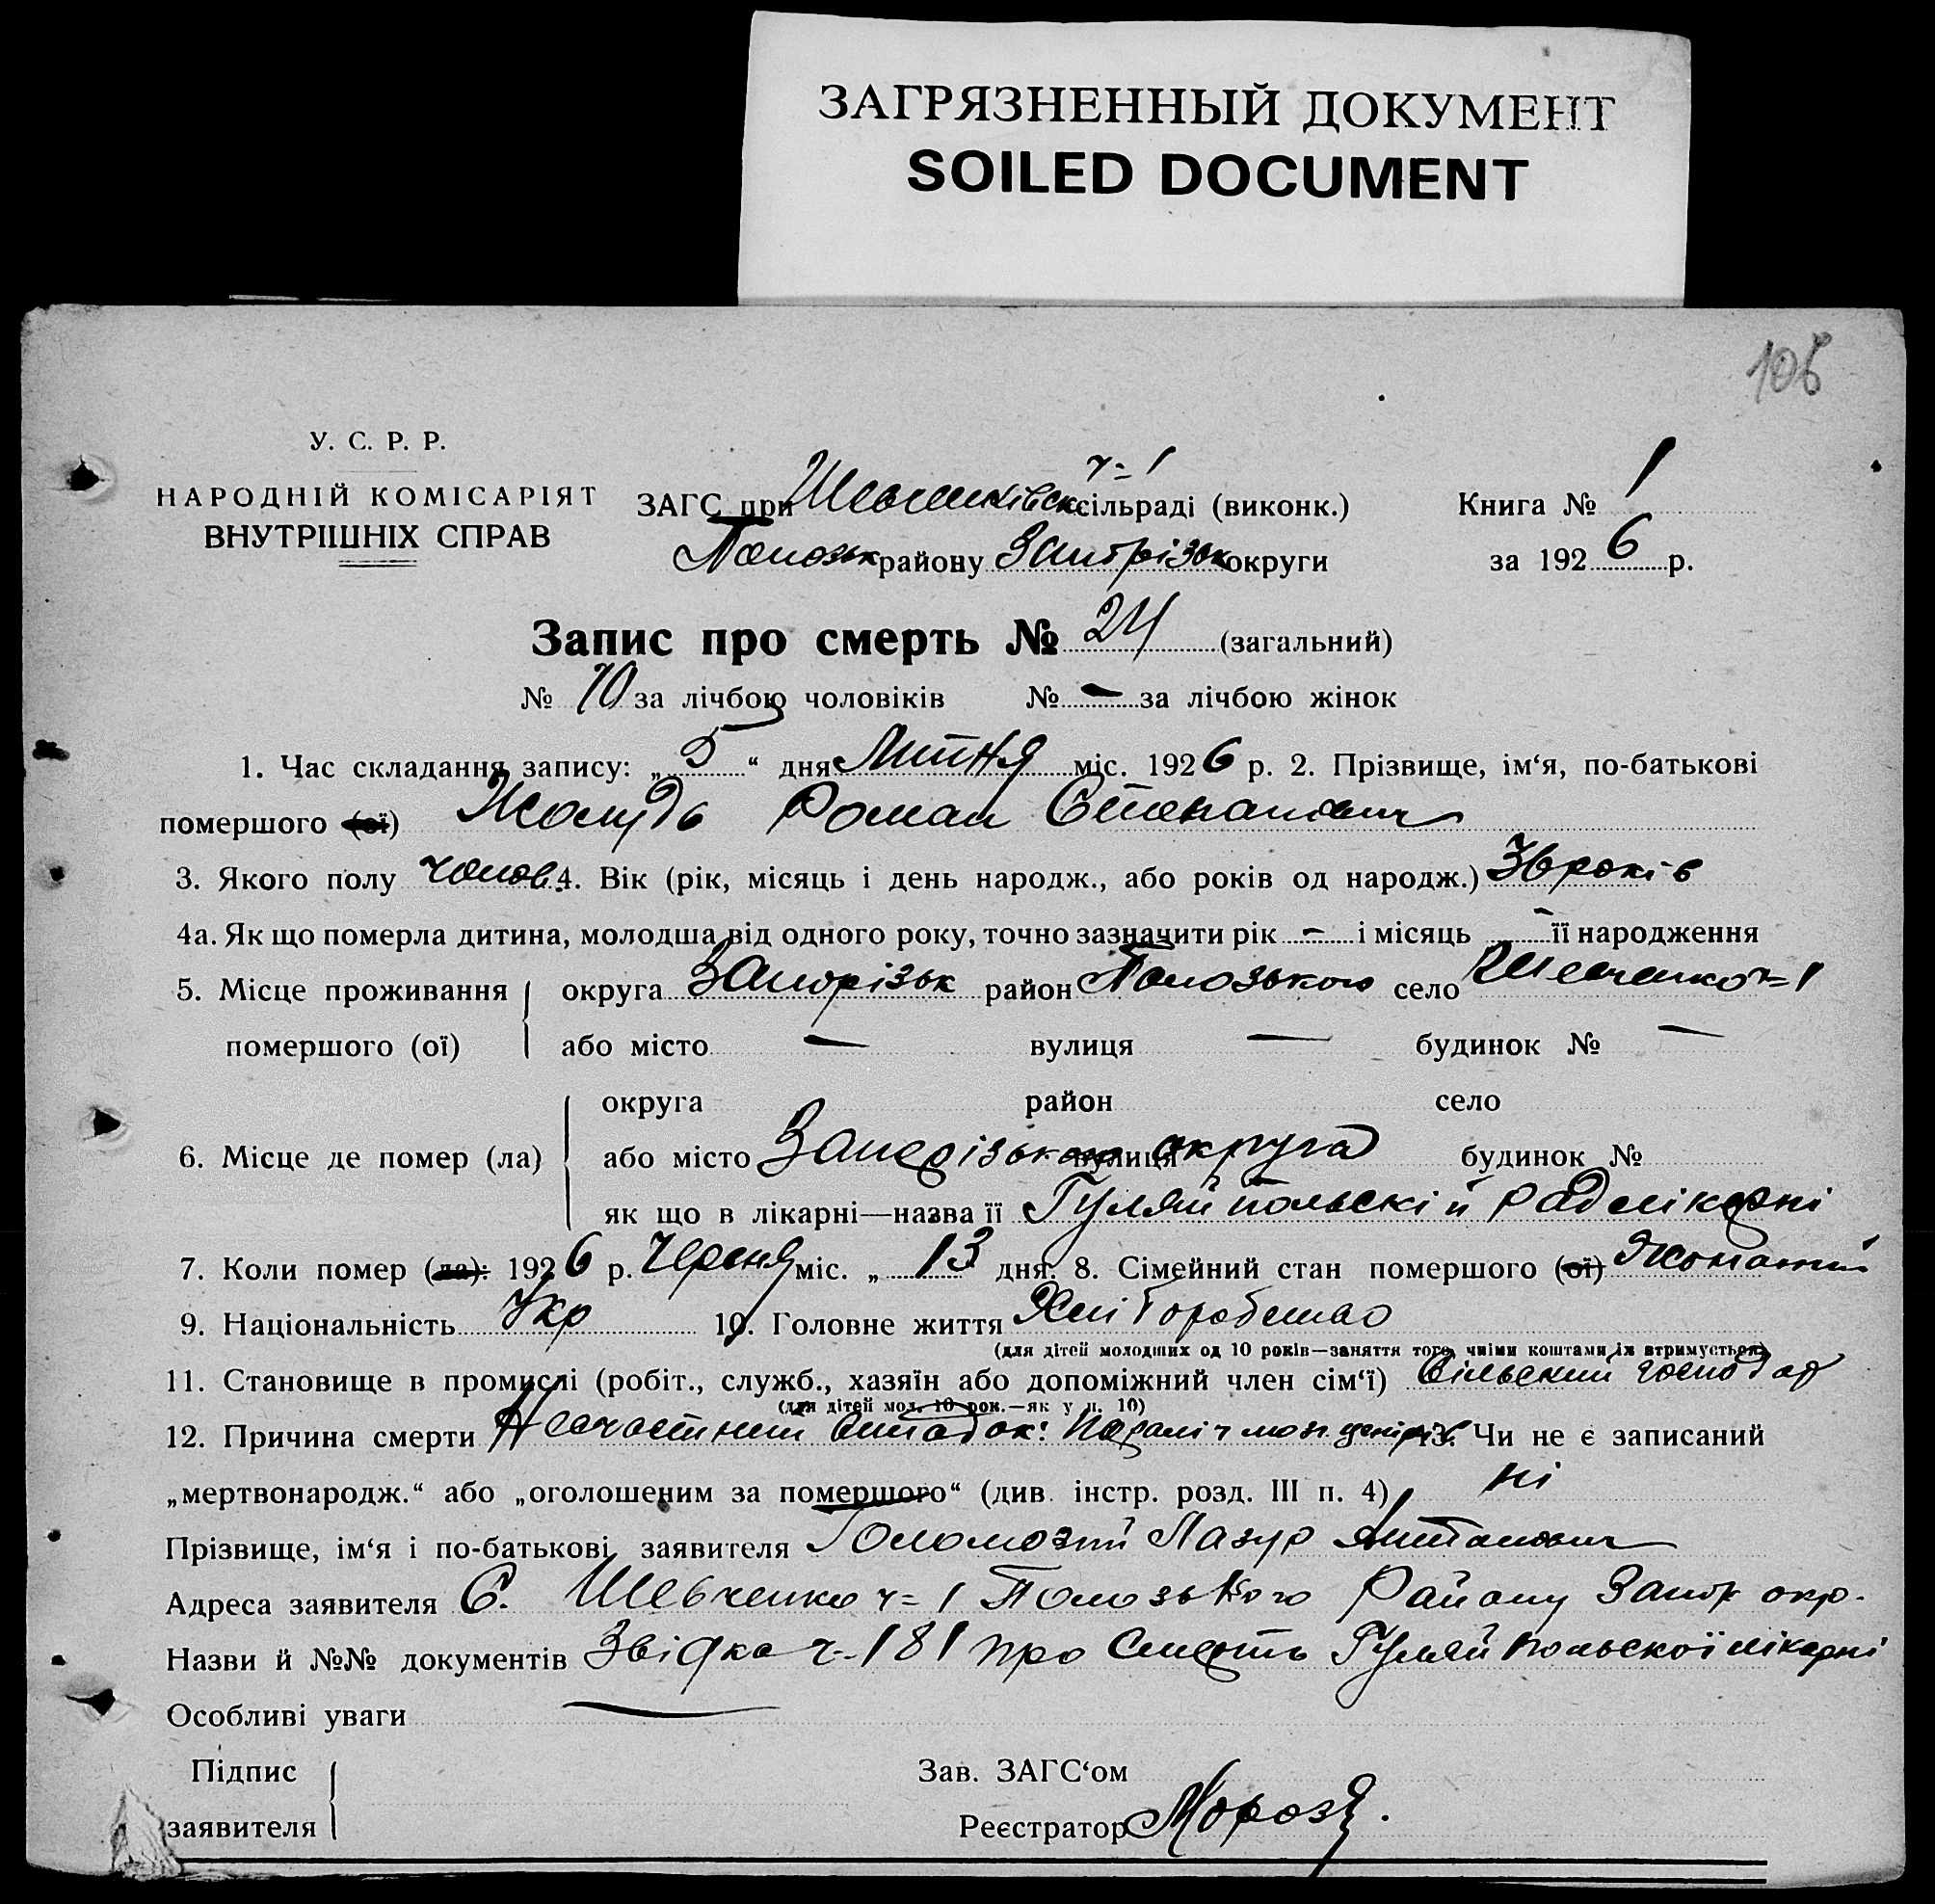 ЗАГРЯЗНЕННЫЙ ДОКУМЕНТ
SOILED DOCUMENT
106
У. С. Р. Р.
НАРОДНІЙ КОМІСАРІЯТ
ВНУТРІШНІХ СПРАВ
ЗАГС при Шевченківськ ч=1 сільраді (виконк.) Книга № 1
Полозьк району Запорізьк округи за 1926 р.
Запис про смерть № 24 (загальний)
№ 10 за лічбою чоловіків № — за лічбою жінок
1. Час складання запису: „5“ дня Липня міс. 1926 р. 2. Прізвище, ім‘я, по-батькові
помершого (ої) Жолудь Роман Степанович
3. Якого полу чолов. 4. Вік (рік, місяць і день народж., або років од народж.) 36 років
4а. Як що померла дитина, молодша від одного року, точно зазначити рік — і місяць — її народження
5. Місце проживання округа Запорізьк район Полозького село Шевченко ч=1
помершого (ої) або місто — вулиця — будинок № —
округа район село
6. Місце де помер (ла) або місто Запорізького вулиця округа будинок №
як що в лікарні—назва її Гуляйпольскій Радлікарні
7. Коли помер (ла): 1926 р. Червня міс. „ 13 дня. 8. Сімейний стан помершого (ої) Жонатий
9. Національність Укр 10. Головне життя Хліборобство
(для дітей молодших од 10 років—заняття того, чиїми коштами їх втримується)
11. Становище в промислі (робіт., служб., хазяїн або допоміжний член сім‘ї) Сільский господар
(для дітей мол. 10 рок.—як у п. 10)
12. Причина смерти Нещастний випадок: Параліч мозг. центрів 13. Чи не є записаний
„мертвонародж.“ або „оголошеним за помершого“ (див. інстр. розд. III п. 4) ні
Прізвище, ім‘я і по-батькові заявителя Голомозий Лазур
Адреса заявителя С. Шевченко ч=1 Полозького Району Запор окр.
Назви й №№ документів Звідка ч-181 про Смерть Гуляйпольскої лікарні
Особливі уваги —
Підпис Зав. ЗАГС‘ом
заявителя Реєстратор Мороз